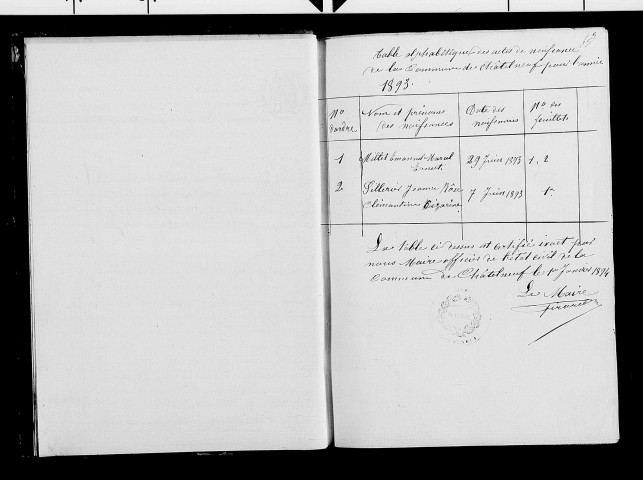 Table alphabétique des actes de naissance
de la Commune de Châtelneuf pour l'année
1893.
Nos d'ordre | Nom et prénoms des naissances | Date des naissances | Nos des feuillets
1 | Millet Emmanuel Marcel Ernest | 29 Juin 1893 | 1, 2
2 | Jeanne Rose Clémentine | 7 Juin 1893 | 1
La table ci dessus est certifié exact par
nous Maire officier de l'état civil de la
Commune de Châtelneuf le 1er Janvier 1894
Le Maire